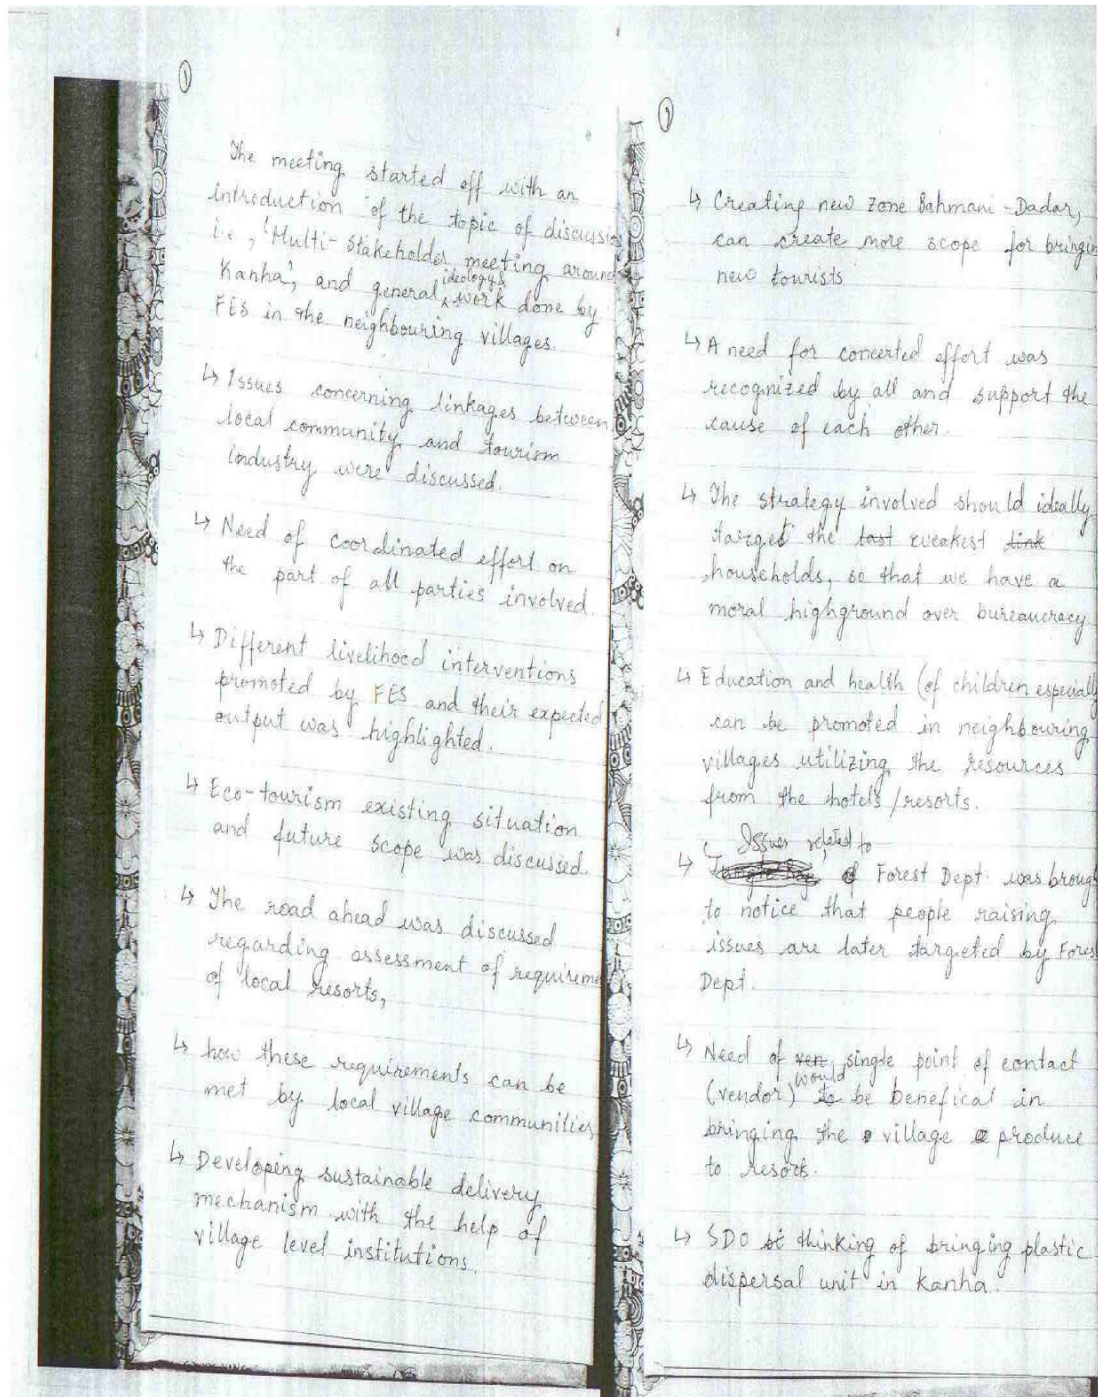 १
The meeting started off with an
introduction of the topic of discussio
i.e, 'Multi-stakeholder meeting around
Kanha', and general ideology & work done by
FES in the neighbouring villages
↳ Issues concerning linkages between
local community and tourism
industry were discussed.
↳ Need of coordinated effort on
the part of all parties involved.
↳ Different livelihood interventions
promoted by FES and their expected
output was highlighted.
↳ Eco-tourism existing situation
and future scope was discussed
↳ The road ahead was discussed
regarding assessment of requireme
of local resorts,
↳ how these requirements can be
met by local village communities
↳ Developing sustainable delivery
mechanism with the help of
village level institutions.
१
↳ Creating new zone Bahmani-Dadar,
can create more scope for bringin
new tourists
↳ A need for concerted effort was
recognized by all and support the
cause of each other.
↳ The strategy involved should ideally
target the last weakest link
households, so that we have a
moral highground over bureaucracy.
↳ Education and health (of children especially
can be promoted in neighbouring
villages utilizing the resources
from the hotels/resorts.
Issues related to
↳ Forest Dept. was brough
to notice that people raising
issues are later targeted by Fores
Dept.
↳ Need of ven single point of contact
(vendor) would to be benefical in
bringing the village produce
to resorts.
↳ SDO thinking of bringing plastic
dispersal unit in Kanha.